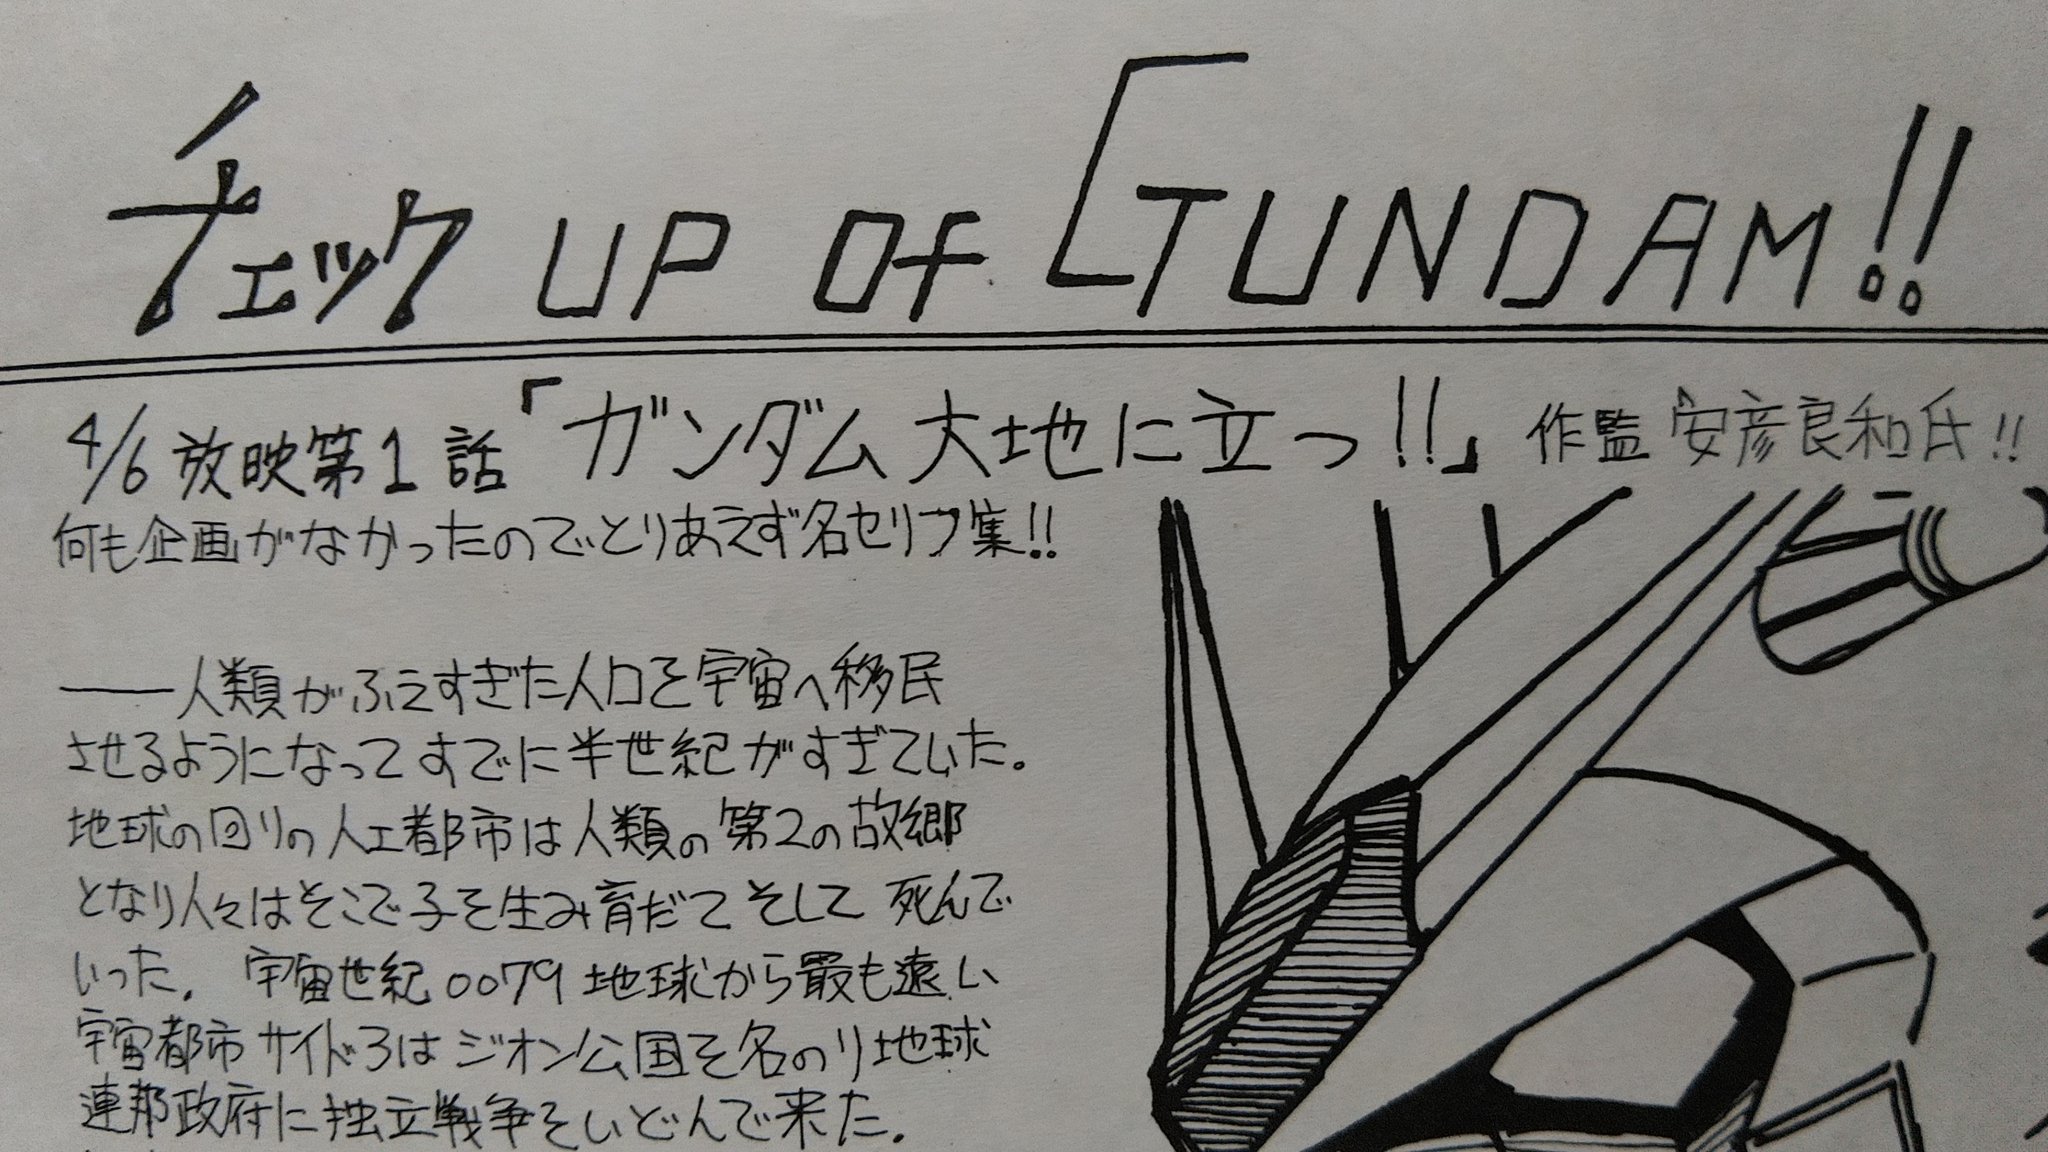 チェック UP OF GUNDAM!!
4/6 放映第1話「ガンダム大地に立つ!!」 作監 安彦良和氏!!
何も企画がなかったのでとりあえず名セリフ集!!
——人類がふえすぎた人口を宇宙へ移民
させるようになってすでに半世紀がすぎていた。
地球の回りの人工都市は人類の第2の故郷
となり人々はそこで子を生み育だてそして死んで
いった。宇宙世紀0079地球から最も遠い
宇宙都市サイド3はジオン公国を名のり地球
連邦政府に独立戦争をいどんで来た。